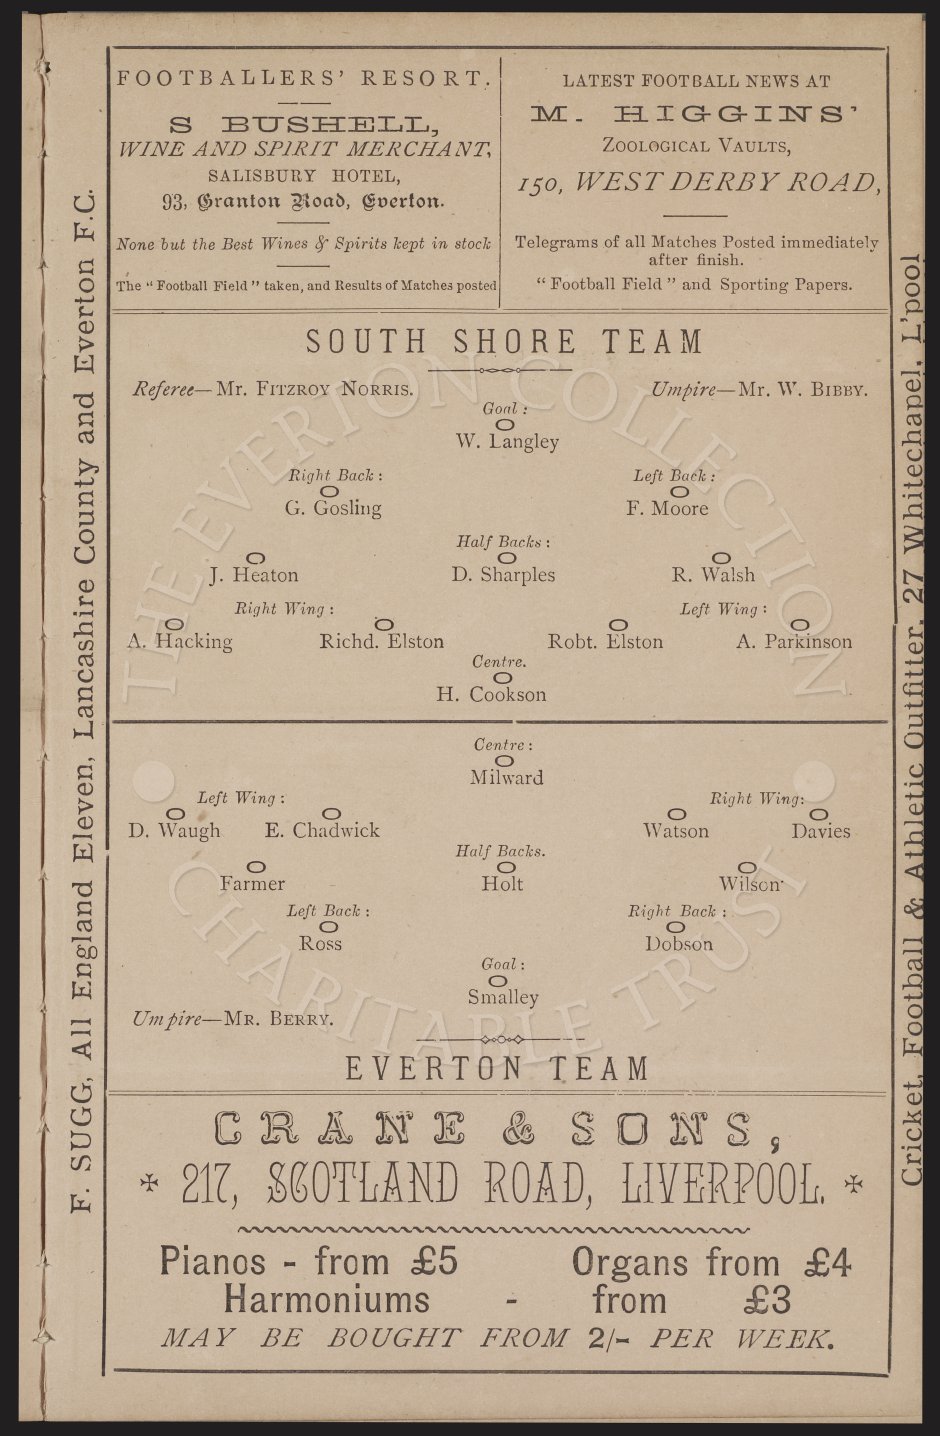 FOOTBALLERS' RESORT.
S BUSHELL,
WINE AND SPIRIT MERCHANT,
SALISBURY HOTEL,
93, Granton Road, Everton.
None but the Best Wines & Spirits kept in stock
The "Football Field" taken, and Results of Matches posted
LATEST FOOTBALL NEWS AT
M. HIGGINS'
ZOOLOGICAL VAULTS,
150, WEST DERBY ROAD,
Telegrams of all Matches Posted immediately
after finish.
"Football Field" and Sporting Papers.
F. SUGG, All England Eleven, Lancashire County and Everton F.C.
SOUTH SHORE TEAM
Referee—Mr. FITZROY NORRIS. Umpire—Mr. W. BIBBY.
Goal:
W. Langley
Right Back: Left Back:
G. Gosling F. Moore
Half Backs:
J. Heaton D. Sharples R. Walsh
Right Wing: Left Wing:
A. Hacking Richd. Elston Robt. Elston A. Parkinson
Centre.
H. Cookson
Centre:
Milward
Left Wing: Right Wing:
D. Waugh E. Chadwick Watson Davies
Half Backs.
Farmer Holt Wilson
Left Back: Right Back:
Ross Dobson
Goal:
Smalley
Umpire—MR. BERRY.
EVERTON TEAM
CRANE & SONS,
217, SCOTLAND ROAD, LIVERPOOL.
Pianos - from £5 Organs from £4
Harmoniums - from £3
MAY BE BOUGHT FROM 2/- PER WEEK.
Cricket, Football & Athletic Outfitter, 27 Whitechapel, L'pool
THE EVERTON COLLECTION
CHARITABLE TRUST